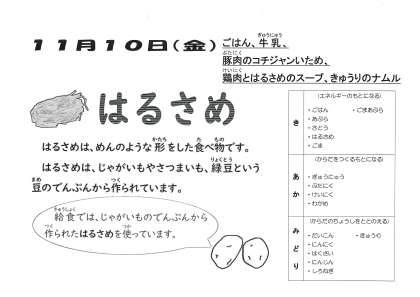 11月10日(金)
ごはん、牛乳、
豚肉のコチジャンいため、
鶏肉とはるさめのスープ、きゅうりのナムル
はるさめ
はるさめは、めんのような形をした食べ物です。
はるさめは、じゃがいもやさつまいも、緑豆という
豆のでんぷんから作られています。
給食では、じゃがいものでんぷんから
作られたはるさめを使っています。
き
(エネルギーのもとになる)
・ごはん ・ごまあぶら
・あぶら
・さとう
・はるさめ
・ごま
あか
(からだをつくるもとになる)
・ぎゅうにゅう
・ぶたにく
・けいにく
・わかめ
みどり
(からだのちょうしをととのえる)
・だいこん ・きゅうり
・にんにく
・はくさい
・にんじん
・しろねぎ